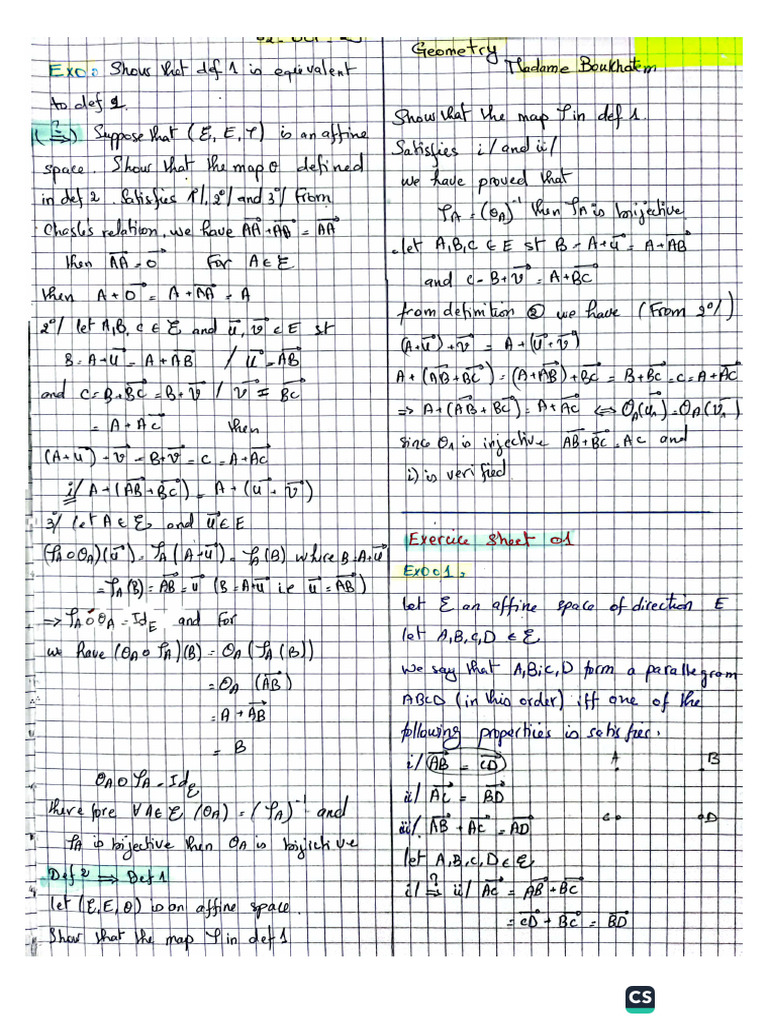 Geometry
Madame Boukhatem
Exo: Show that def 1 is equivalent
to def 2.
(⇒?) Suppose that (ℰ, E, φ) is an affine
space. Show that the map θ defined
in def 2. Satisfies 1°/, 2°/ and 3°/ From
Chasle's relation, we have AA⃗ + AA⃗ = AA⃗
then AA⃗ = 0⃗ For A ∈ ℰ
then A + 0⃗ = A + AA⃗ = A
2°/ let A, B, C ∈ ℰ and u⃗, v⃗ ∈ E st
B = A + u⃗ = A + AB⃗ / u⃗ = AB⃗
and C = B + BC⃗ = B + v⃗ / v⃗ = BC⃗
= A + AC⃗ then
(A + u⃗) + v⃗ = B + v⃗ = C = A + AC⃗
i/ A + (AB⃗ + BC⃗) = A + (u⃗ + v⃗)
3°/ let A ∈ ℰ and u⃗ ∈ E
(φA ∘ θA)(u⃗) = φA (A + u⃗) = φA(B) where B = A + u⃗
= φA(B) = AB⃗ = u⃗ (B = A + u⃗ i.e u⃗ = AB⃗)
⇒ φA ∘ θA = IdE and For
we have (θA ∘ φA)(B) = θA (φA (B))
= θA (AB⃗)
= A + AB⃗
= B
θA ∘ φA = Idℰ
there fore ∀A ∈ ℰ (θA) = (φA)⁻¹ and
φA is bijective then θA is bijictive
Def 2 ⇒ Def 1
let (ℰ, E, θ) is an affine space.
Show that the map φ in def 1
Show that the map φ in def 1.
Satisfies i/ and ii/
we have proved that
φA = (θA)⁻¹ then φA is bijective
. let A, B, C ∈ E st B = A + u⃗ = A + AB⃗
and C = B + v⃗ = A + BC⃗
from definition ② we have (From 2°/)
(A + u⃗) + v⃗ = A + (u⃗ + v⃗)
A + (AB⃗ + BC⃗) = (A + AB⃗) + BC⃗ = B + BC⃗ = C = A + AC⃗
⇒ A + (AB⃗ + BC⃗) = A + AC⃗ ⇔ θA(u₁⃗) = θA(v₁⃗)
since θA is injective AB⃗ + BC⃗ = AC and
i) is verified
Exercice Sheet 01
Exo 01:
let ℰ an affine space of direction E
let A, B, C, D ∈ ℰ
We say that A, B, C, D form a parallegram
ABCD (in this order) iff one of the
following properties is satisfies.
i/ AB⃗ = CD⃗ A B
ii/ AC⃗ = BD⃗
iii/ AB⃗ + AC⃗ = AD⃗ C D
let A, B, C, D ∈ ℰ
i/ ⇒? ii/ AC⃗ = AB⃗ + BC⃗
= CD⃗ + BC⃗ = BD⃗
CS